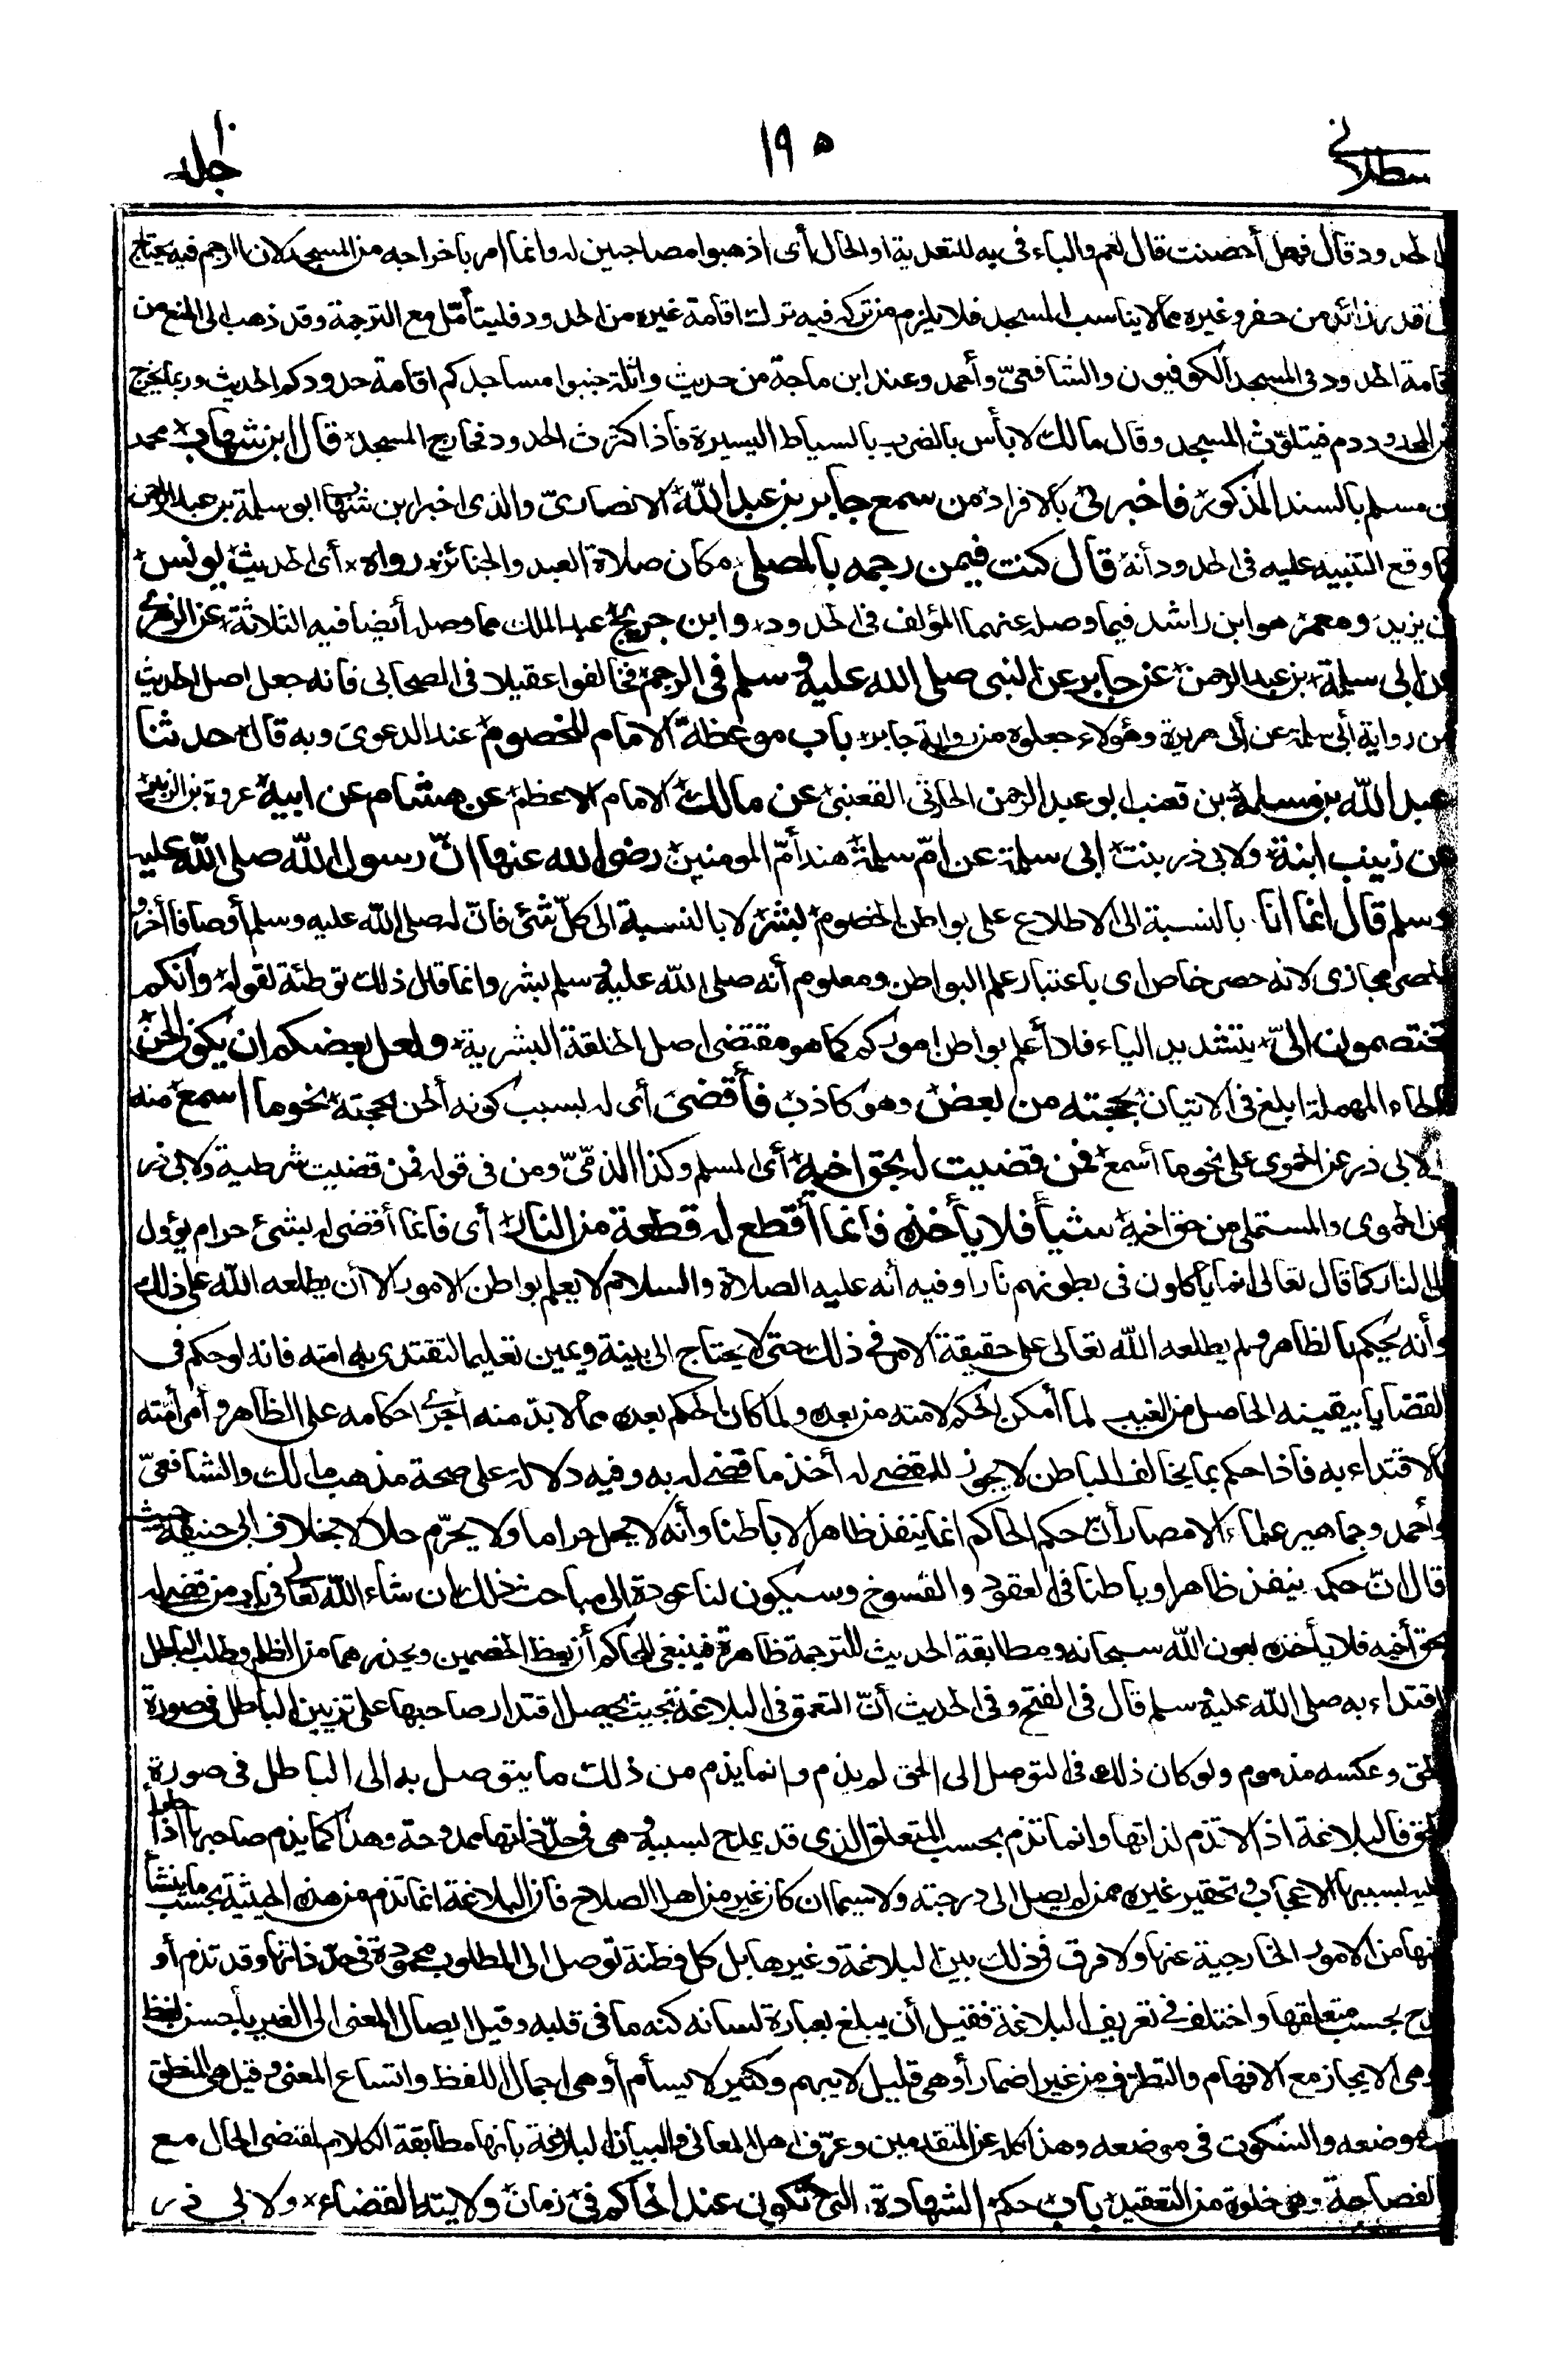 سطلانى ١٩٥ جلد
الحدود قال فهل أحصنت قال نعم والباء فى به للتعدية او الحال أى اذهبوا مصاحبين له وانما امر باخراجه من المسجد لان الرجم فيه يحتاج
قدر زائد من حفر وغيره مما لا يناسب المسجد فلا يلزم من تركه فيه ترك اقامة غيره من الحدود فليتأمّل مع الترجمة وقد ذهب الى المنع من
قامة الحدود فى المسجد الكوفيون والشافعىّ وأحمد وعند ابن ماجة من حديث واثلة جنبوا مساجدكم اقامة حدودكم الحديث وربما يخرج
من المحدود دم فيتلوّث المسجد وقال مالك لا بأس بالضرب بالسياط اليسيرة فاذا كثرت الحدود فخارج المسجد قال ابن شهاب محمد
بن مسلم بالسند المذكور فاخبرنى بالافراد من سمع جابر بن عبد الله الانصارىّ والذى اخبر ابن شهاب ابو سلمة بن عبد الرحمن
كما وقع التنبيه عليه فى الحدود أنه قال كنت فيمن رجمه بالمصلى مكان صلاة العيد والجنائز رواه أى الحديث يونس
بن يزيد ومعمر هو ابن راشد فيما وصله عنهما المؤلف فى الحدود وابن جريج عبد الملك مما وصل أيضا فيه الثلاثة عن الزهرى
عن ابى سلمة بن عبد الرحمن عن جابر عن النبى صلى الله عليه وسلم فى الرجم فخالفوا عقيلا فى الصحابى فانه جعل اصل الحديث
من رواية أبى سلمة عن أبى هريرة وهؤلاء جعلوه من رواية جابر باب موعظة الامام للخصوم عند الدعوى وبه قال حدثنا
عبد الله بن مسلمة بن قعنب ابو عبد الرحمن الحارثى القعنبى عن مالك الامام الاعظم عن هشام عن ابيه عروة بن الزبير
عن زينب ابنة ولابى ذر بنت ابى سلمة عن امّ سلمة هند أمّ المومنين رضى الله عنها انّ رسول الله صلى الله عليه
وسلم قال انما انا بالنسبة الى الاطلاع على بواطن الخصوم بشر لا بالنسبة الى كلّ شئ فانّ له صلى الله عليه وسلم أوصافا أخر و
الحصر مجازى لانه حصر خاص اى باعتبار علم البواطن ومعلوم أنه صلى الله عليه وسلم بشر وانما قال ذلك توطئة لقوله وانكم
تختصمون الىّ بتشديد الياء فلا أعلم بواطن اموركم كما هو مقتضى اصل الخلقة البشرية ولعل بعضكم ان يكون الحن
بالحاء المهملة ابلغ فى الاتيان بحجته من بعض وهو كاذب فأقضى أى له بسبب كونه ألحن بحجته نحو ما اسمع منه
ولابى ذر عن الحموى على نحو ما أسمع فمن قضيت له بحق اخيه أى المسلم وكذا الذمّىّ ومن فى قوله فمن قضيت شرطية ولابى ذر
عن الحموى والمستملى من حق اخيه شيأ فلا يأخذه فانما أقطع له قطعة من النار أى فانما أقضى له بشئ حرام يؤول
الى النار كما قال تعالى انما يأكلون فى بطونهم نارا وفيه أنه عليه الصلاة والسلام لا يعلم بواطن الامور الا أن يطلعه الله على ذلك
وأنه يحكم بالظاهر ولم يطلعه الله تعالى على حقيقة الامر فى ذلك حتى لا يحتاج الى بينة ويمين تعليما لتقتدى به امته فانه لو حكم فى
القضايا بيقينه الحاصل من الغيب لما أمكن الحكم لامته من بعده ولما كان الحكم بعده مما لا بدّ منه أجرى احكامه على الظاهر وأمر أمّته
بالاقتداء به فاذا حكم بما يخالف الباطن لا يجوز للمقضى له أخذ ما قضى له به وفيه دلالة على صحة مذهب مالك والشافعىّ
وأحمد وجماهير علماء الامصار أنّ حكم الحاكم انما ينفذ ظاهرا لا باطنا وأنه لا يحل حراما ولا يحرّم حلالا بخلاف ابى حنيفة حيث
قال انّ حكمه ينفذ ظاهرا وباطنا فى العقود والفسوخ وسيكون لنا عودة الى مباحث ذلك ان شاء الله تعالى فى باب من قضى له
بحق أخيه فلا يأخذه بعون الله سبحانه ومطابقة الحديث للترجمة ظاهرة فينبغى للحاكم أن يعظ الخصمين ويحذرهما من الظلم وطلب الباطل
اقتداء به صلى الله عليه وسلم قال فى الفتح وفى الحديث أنّ التعمق فى البلاغة بحيث يحصل اقتدار صاحبها على تزيين الباطل فى صورة
الحق وعكسه مذموم ولو كان ذلك فى التوصل الى الحق لم يذم وانما يذم من ذلك ما يتوصل به الى الباطل فى صورة
الحق فالبلاغة اذا لا تذم لذاتها وانما تذم بحسب المتعلق الذى قد يمدح بسببه وهى فى حدّ ذاتها ممدوحة وهذا كما يذم صاحبها اذا طرأ
عليه بسببها الاعجاب وتحقير غيره ممن لم يصل الى درجته ولا سيما ان كان غيره من اهل الصلاح فان البلاغة انما تذم من هذه الحيثية بحسب ما ينشأ
عنها من الامور الخارجية عنها ولا فرق فى ذلك بين البلاغة وغيرها بل كل فطنة توصل الى المطلوب محمودة فى حدّ ذاتها وقد تذم أو
تمدح بحسب متعلقها واختلف فى تعريف البلاغة فقيل أن يبلغ بعبارة لسانه كنه ما فى قلبه وقيل ايصال المعنى الى الغير بأحسن لفظ
وهى الايجاز مع الافهام والتطرف من غير اضمار أو هى قليل لا يبهم وكثير لا يسأم أو هى اجمال اللفظ واتساع المعنى وقيل هى المنطق
فى موضعه والسكوت فى موضعه وهذا كله عن المتقدمين وعرّف اهل المعانى والبيان البلاغة بانها مطابقة الكلام لمقتضى الحال مع
الفصاحة وهى خلوه من التعقيد باب حكم الشهادة التى تكون عند الحاكم فى زمان ولايته القضاء ولابى ذر